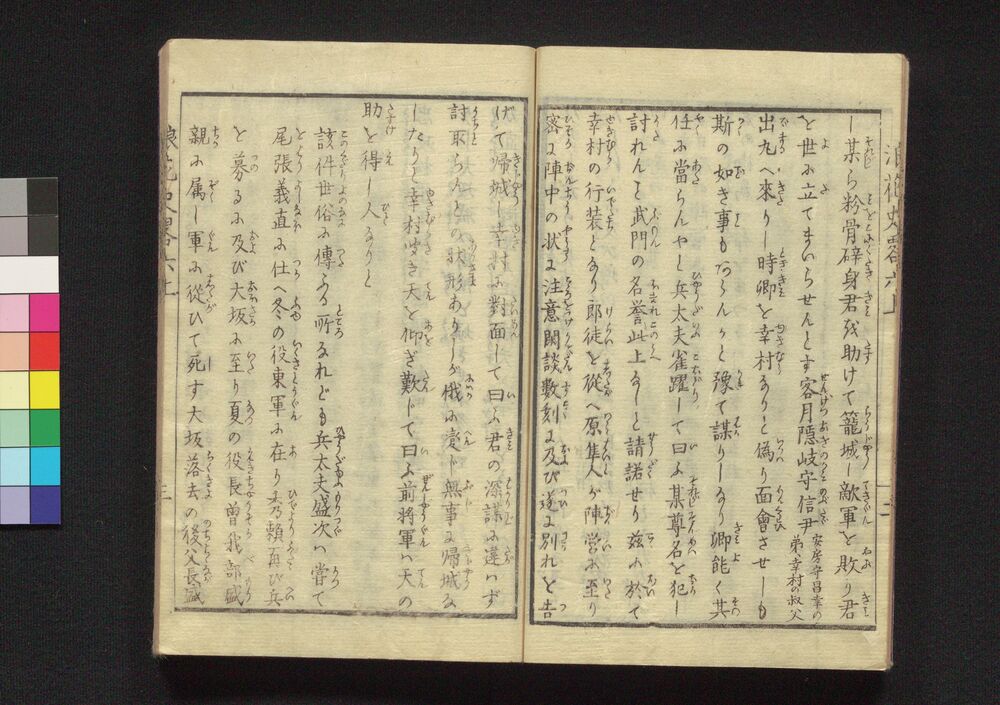 し某ら粉骨砕身君を助けて籠城し敵軍を敗り君
を世に立てまいらせんとす客月隠岐守信尹安房守昌幸の弟幸村の叔父
出丸へ來りし時卿を幸村なりと偽り面會させしも
斯の如き事もあらんかと豫て謀りしなり卿能く其
任に當らんやと兵太夫雀躍して曰ふ某尊名を犯し
討れんこと武門の名誉此上なしと請諾せり茲に於て
幸村の行装となり郎徒を從へ原隼人が陣営に至り
密に陣中の状に注意閑談数刻に及び遂に別れを告
げて帰城し幸村に對面して曰ふ君の深謀に違はず
討取らんとの状形ありしが俄に変じ無事に帰城な
したりと幸村聞き天を仰ぎ歎じて曰ふ前将軍は天の
助を得し人なりと
該件世俗に傳ふる所なれども兵太夫盛次は嘗て
尾張義直に仕へ冬の役東軍に在り秀頼再び兵
を募るに及び大坂に至り夏の役長曾我部盛
親に属し軍に從ひて死す大坂落去の後父長盛